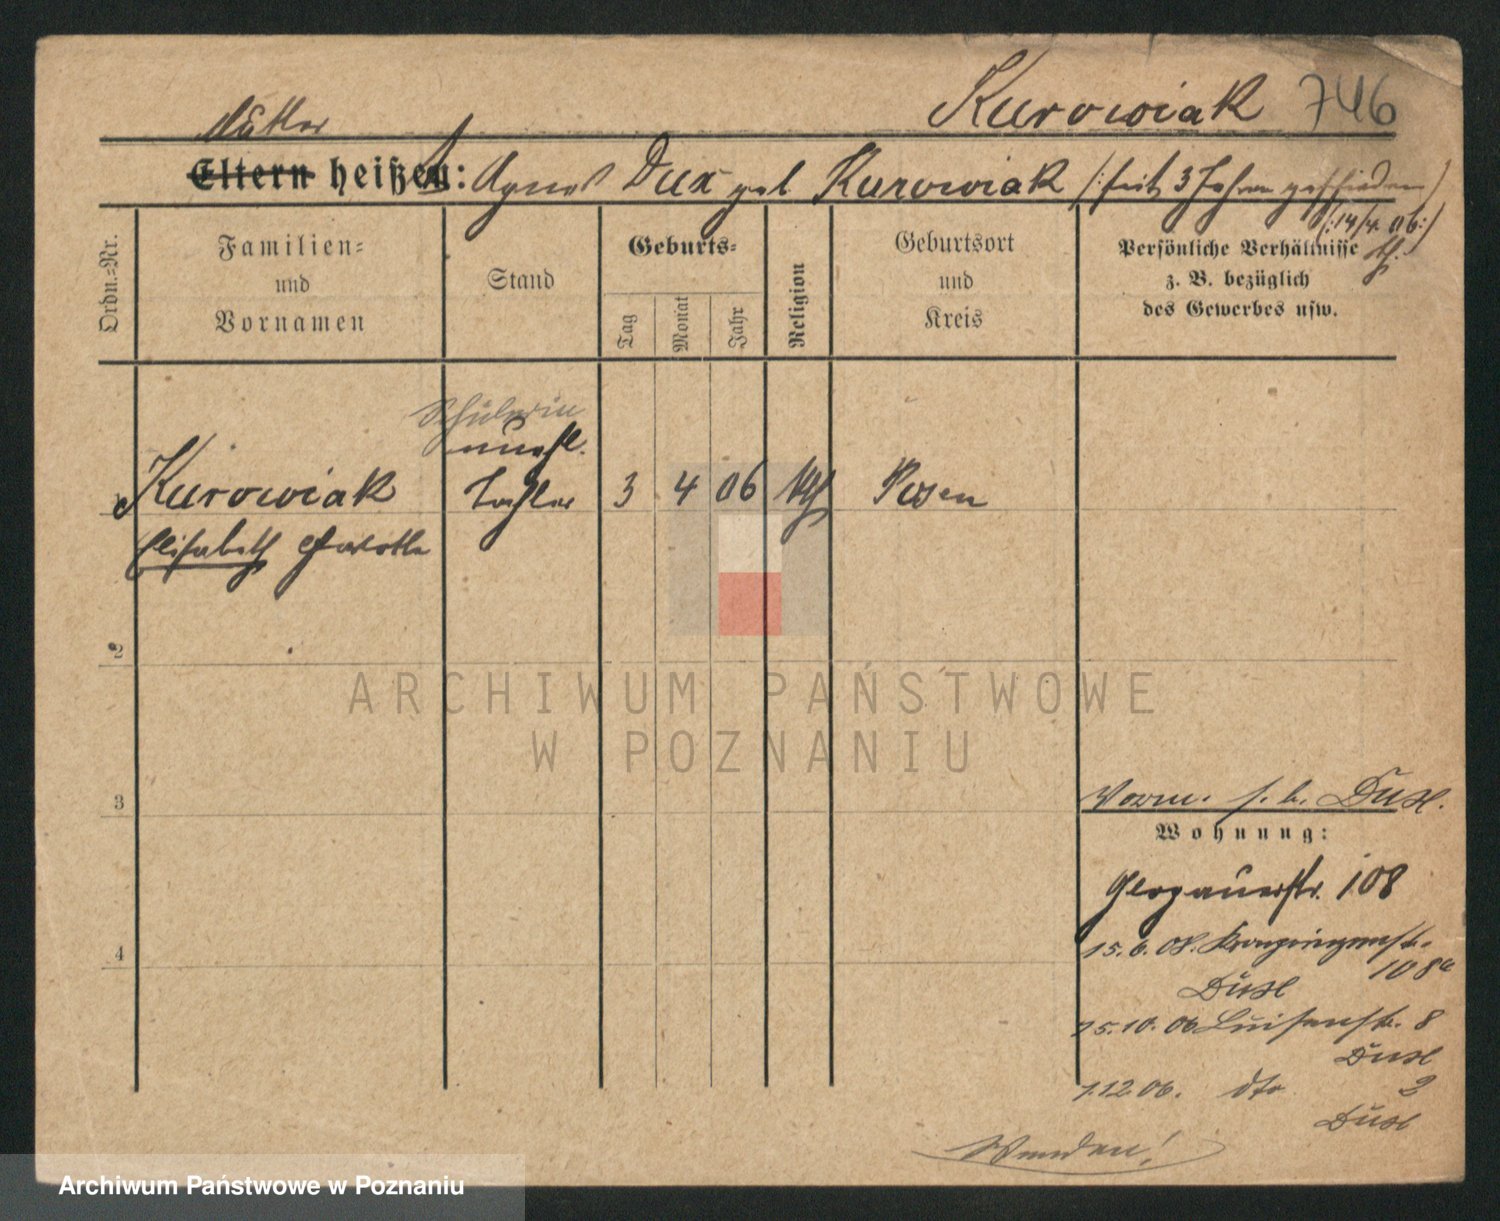 Kurowiak 746
Mutter
Eltern heißen: Agnes Dux geb Kurowiak (: seit 3 Jahren geschieden)
(:14/4. 06:)
Ordn.=Nr.
Familien=
und
Vornamen
Stand
Geburts=
Tag
Monat
Jahr
Religion
Geburtsort
und
Kreis
Persönliche Verhältnisse
z. B. bezüglich
des Gewerbes usw.
Schülerin
unehl.
Kurowiak Tochter 3 4 06 kth Posen
Elisabeth
2
3
4
Vorm. s. b. Dux
Wohnung:
Glogauerstr. 108
15.6.08. Kronprinzenstr.
108a
Dux
15.10.06 Luisenstr. 8
Dux
1.12.06. dto 2
Dux
Wenden!
ARCHIWUM PAŃSTWOWE
W POZNANIU
Archiwum Państwowe w Poznaniu